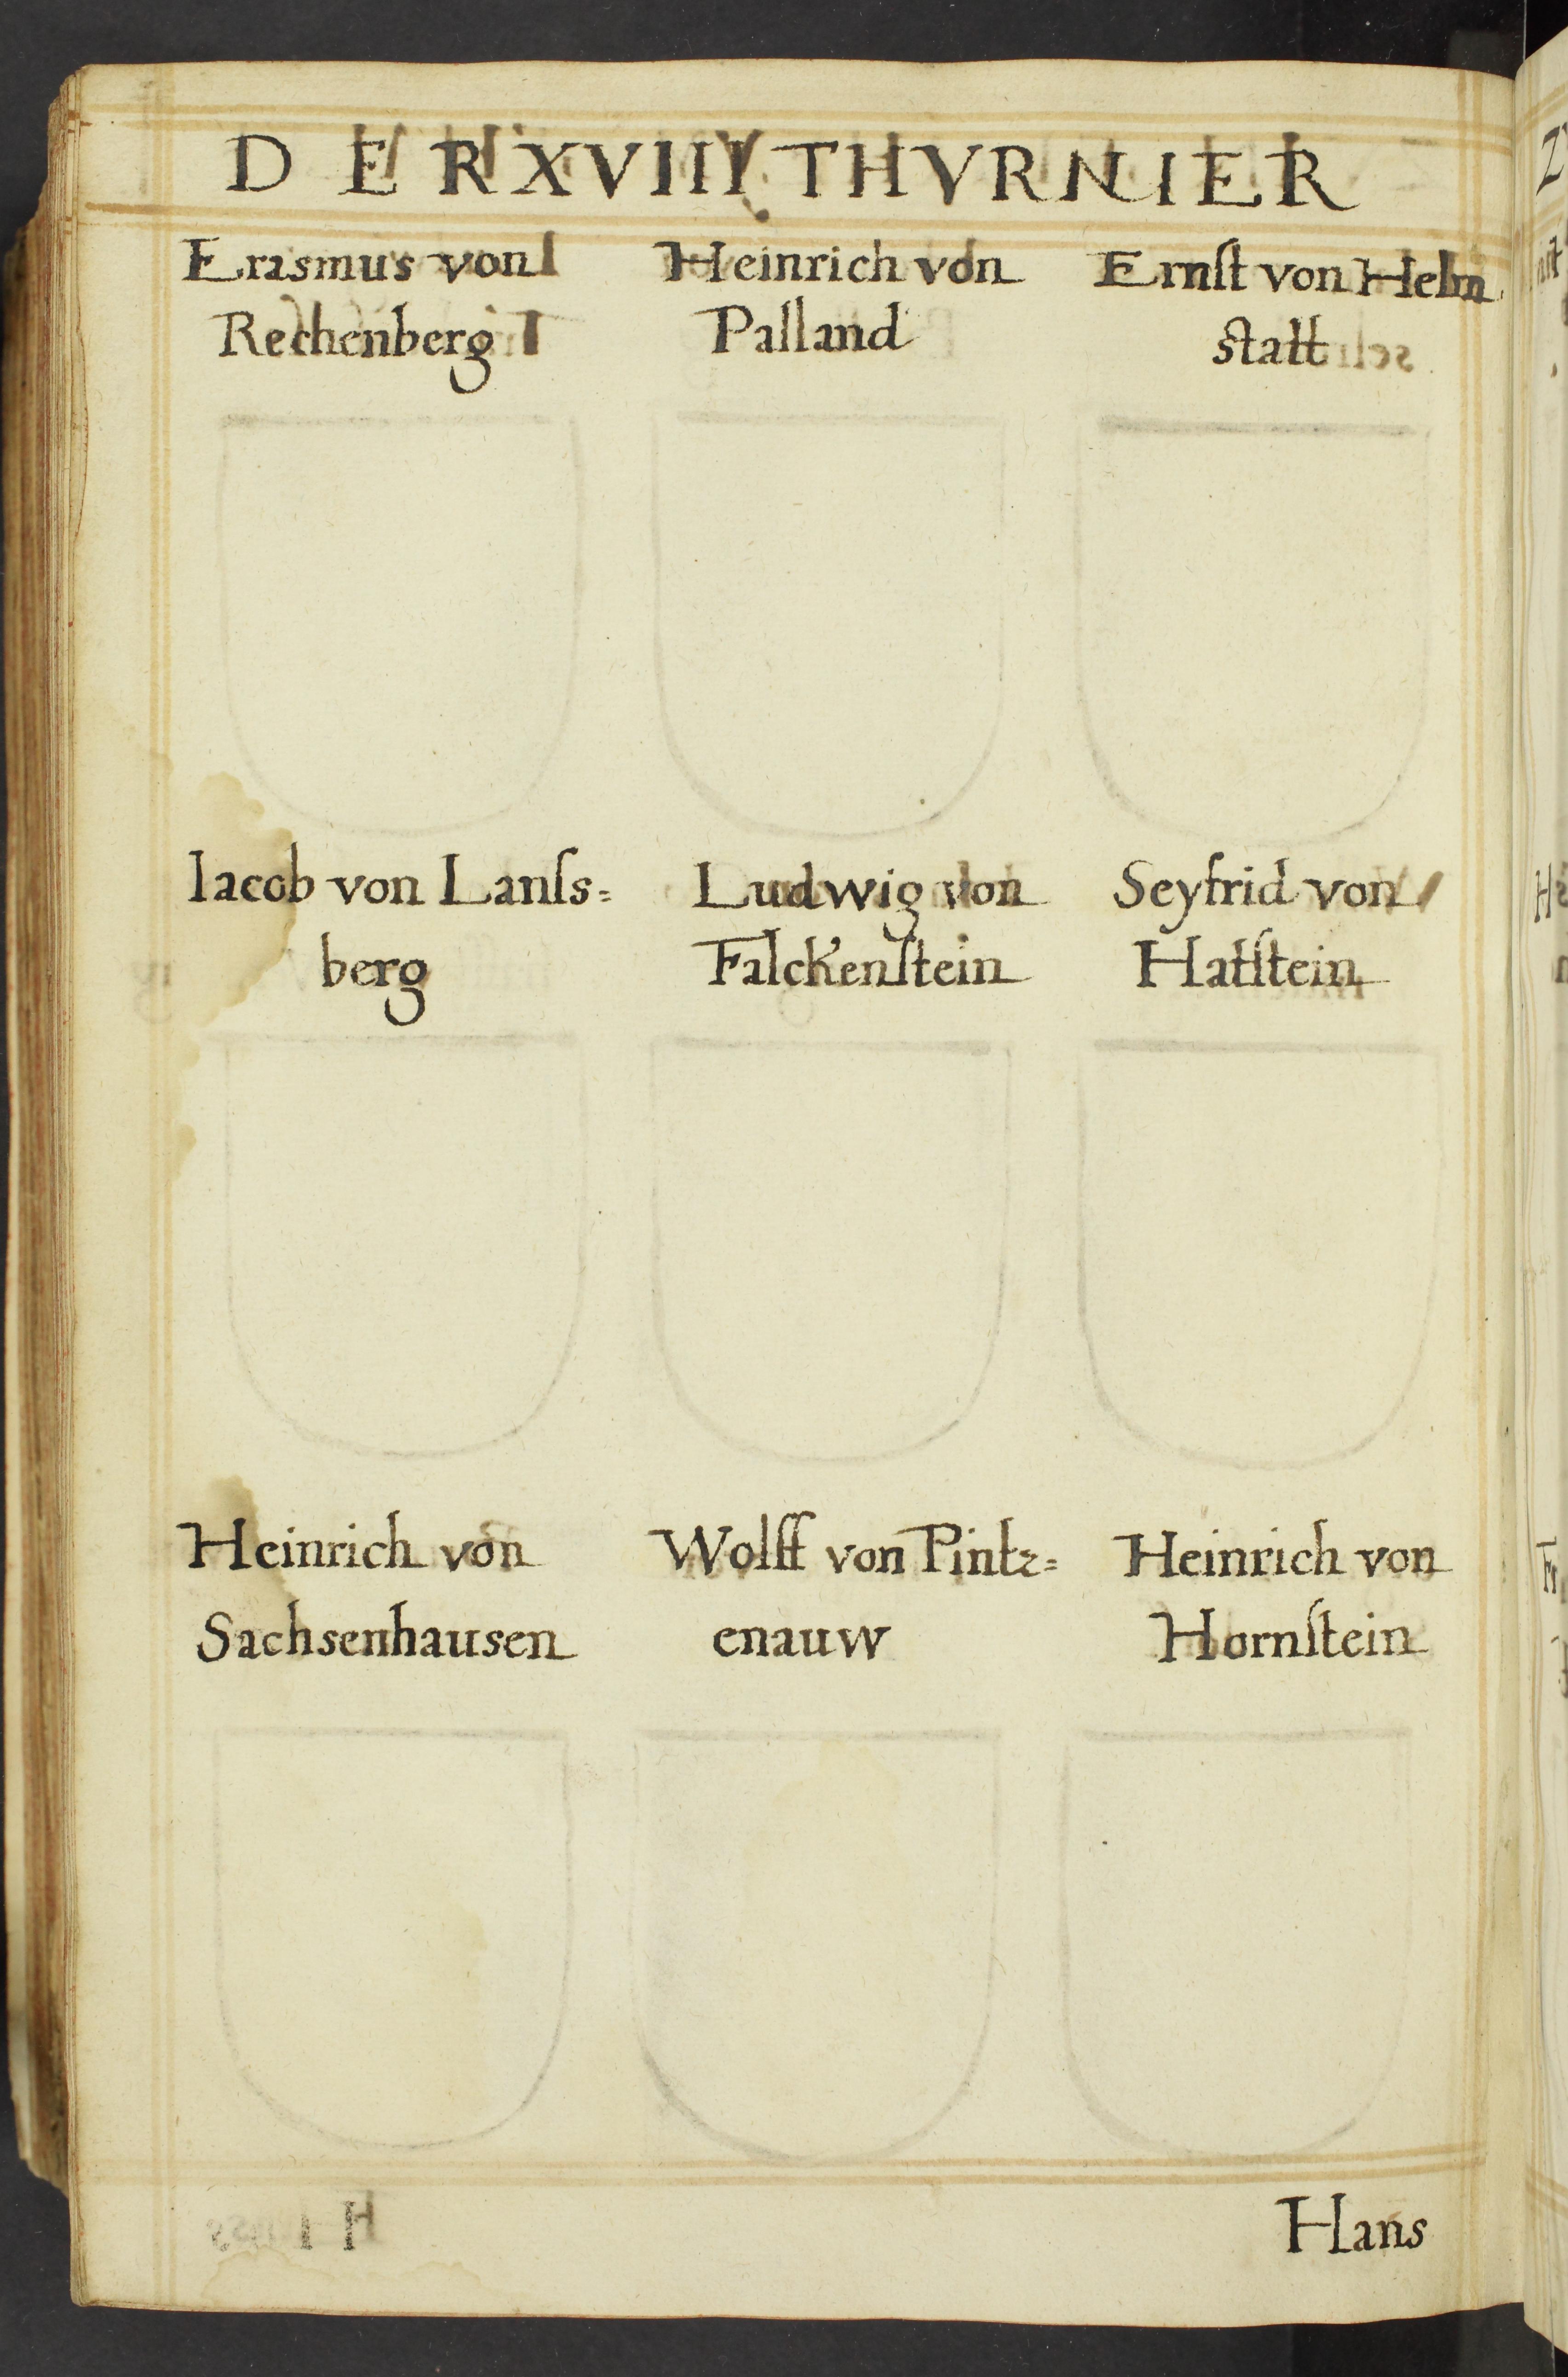 DER XVIIII THVRNIER
Erasmus von
Rechenberg
Heinrich von
Palland
Ernſt von Helm
statt
Iacob von Lanſs=
berg
Ludwig von
Falckenſtein
Seyfrid von
Hatſtein
Heinrich von
Sachsenhausen
Wolff von Pintz=
enauw
Heinrich von
Hornſtein
Hans